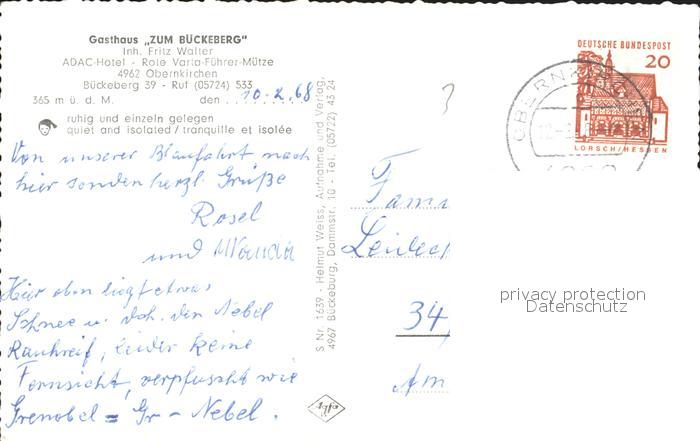 Gasthaus „ZUM BÜCKEBERG"
Inh. Fritz Walter
ADAC-Hotel - Rote Varta-Führer-Mütze
4962 Obernkirchen
Bückeberg 39 - Ruf (05724) 533
365 m ü. d. M. den 10.2.68
ruhig und einzeln gelegen
quiet and isolated / tranquille et isolée
Von unserer Blaufahrt nach
hier senden herzl. Grüße
Rosel
und Wanda
Hier oben liegt etwas
Schnee u. dch. den Nebel
Rauhreif, leider keine
Fernsicht, verpfuscht wie
Grenobel = Gr - Nebel.
S Nr. 1639 - Helmut Weiss, Aufnahme und Verlag,
4967 Bückeburg, Dammstr. 10 - Tel. (05722) 43 24
Agfa
DEUTSCHE BUNDESPOST
20
LORSCH/HESSEN
OBERNK
Fami
Leidec
34
Am
privacy protection
Datenschutz